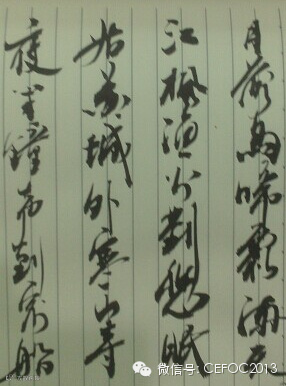 月落烏啼霜滿天
江楓漁火對愁眠
姑蘇城外寒山寺
夜半鐘聲到客船
微信号: CEFOC2013